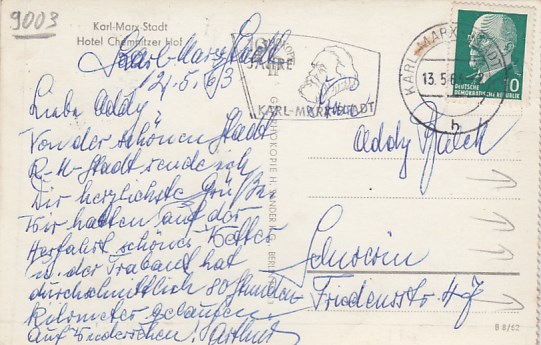 9003
Karl-Marx-Stadt
Hotel Chemnitzer Hof
Karl-Marx-Stadt
12.5.63
Liebe Addy!
Von der schönen Stadt
K-M-Stadt sende ich
Dir herzlichste Grüße.
Wir hatten auf der
Herfahrt schönes Wetter
u. der Trabant hat
durchschnittlich 80 Stunden-
kilometer gelaufen.
Auf Wiedersehen! Arthur
JAHRE
KARL-MARX-STADT
KARL-MARX-STADT
13.5.63
h
10
DEUTSCHE
DEMOKRATISCHE REPUBLIK
Addy
Schwerin
Friedensstr 47
B 8/62